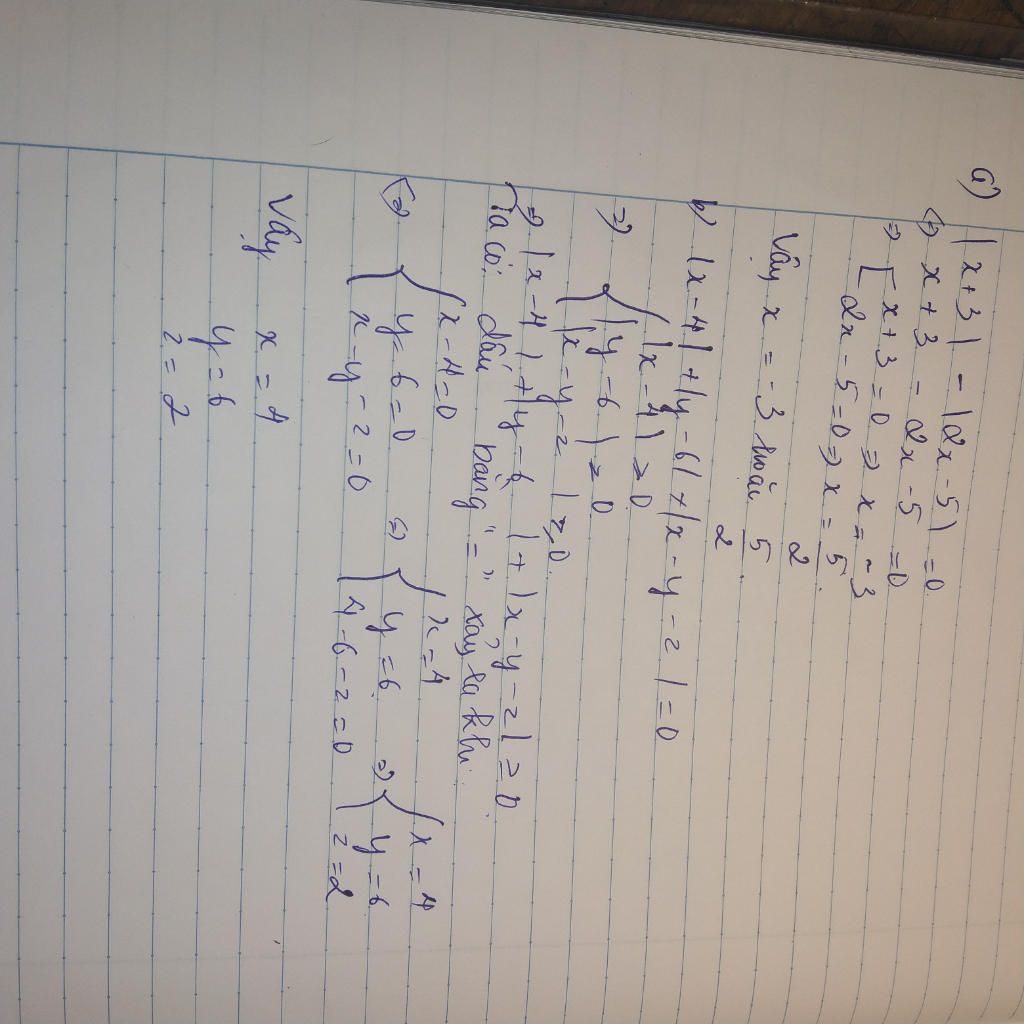 a) |x+3| - |2x-5| = 0
<=> x+3 - 2x-5 = 0
=> [ x+3=0 => x = -3
2x-5=0 => x = 5/2
Vậy x = -3 hoặc 5/2
b) |x-4| + |y-6| + |x-y-z| = 0
=> { |x-4| ≥ 0
|y-6| ≥ 0
|x-y-z| ≥ 0
=> |x-4| + |y-6| + |x-y-z| ≥ 0
Ta có: dấu bằng "=" xảy ra khi:
<=> { x-4=0
y-6=0
x-y-z=0
<=> { x=4
y=6
4-6-z=0
=> { x=4
y=6
z=2
Vậy x=4
y=6
z=2